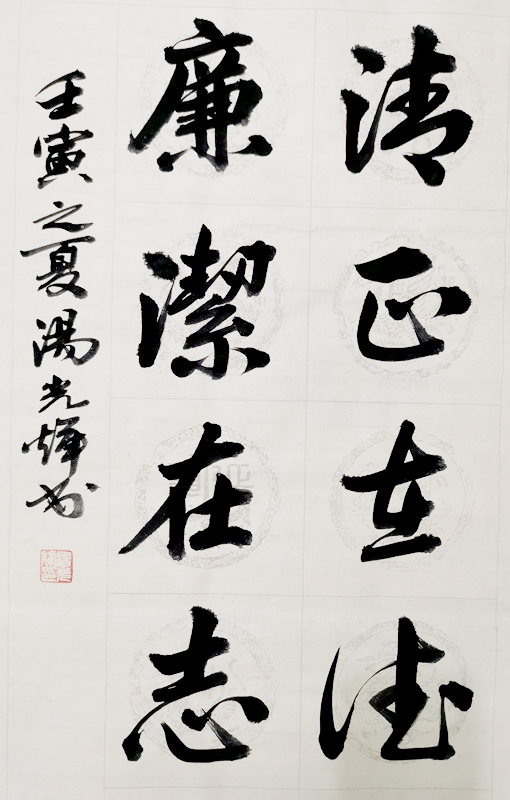 清正在德
廉潔在志
壬寅之夏湯光煇书